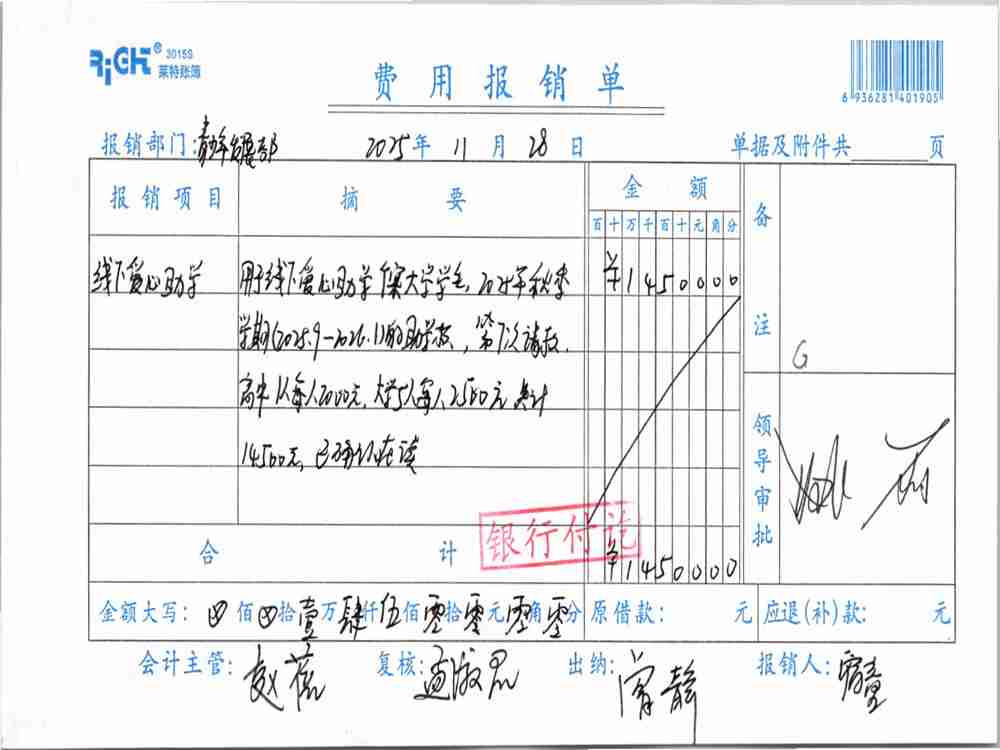 RiGHT® 3015S
莱特账簿
费用报销单
6 936281 401905
报销部门:青少年发展部 2025年 11月 28日 单据及附件共 页
报销项目 摘要 金额 备注
百十万千百十元角分
线下爱心助学 用于线下爱心助学 大学学生, 2025年秋季 ¥1450000
学期(2025.9-2026.1)的助学款, 第 次请款.
高中 人每人2000元, 大学5人每人2500元 共计
14500元, 已确认在读
G
领导审批
银行付讫
合计 ¥1450000
金额大写: 佰 拾壹万肆仟伍佰零拾零元零角零分 原借款: 元 应退(补)款: 元
会计主管:赵蓓 复核:孟淑 出纳:曾静 报销人: